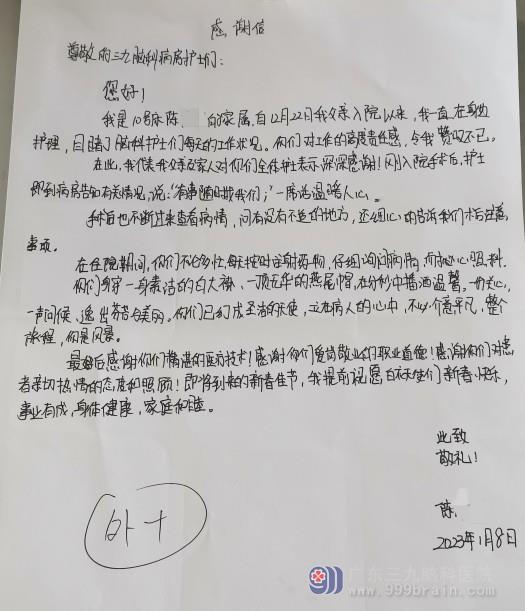 感谢信
尊敬的三九脑科病房护士们:
您好!
我是10号床陈 的家属,自12月22日我父亲入院以来,我一直在身边
护理,目睹了脑科护士们每天的工作状况。你们对工作的高度责任感,令我赞叹不已。
在此,我代表我父亲及家人对你们全体护士表示深深感谢!刚入院手术后,护士
即到病房告知有关情况,说:“有事随时找我们;”一席话温暖人心。
手术后也不断过来查看病情,问有没有不适的地方,还细心的告诉我们术后注意
事项。
在住院期间,你们不论多忙,每天按时注射药物,仔细询问病情,而耐心照料。
你们身穿一身素洁的白大褂、一顶无华的燕尾帽,在分秒中播洒温馨,一片关心,
一声问候、逸出芬芳与美丽。你们已幻成圣洁的天使,立在病人的心中,不必介意平凡,整个
旅程,你是风景。
最后感谢你们精湛的医疗技术!感谢你们爱岗敬业的职业道德!感谢你们对患
者亲切热情的态度和照顾!即将到来的新春佳节,我提前祝愿白衣天使们新春快乐,
事业有成,身体健康,家庭和睦。
此致
敬礼!
陈
2023年1月8日
外十
广东三九脑科医院
www.999brain.com